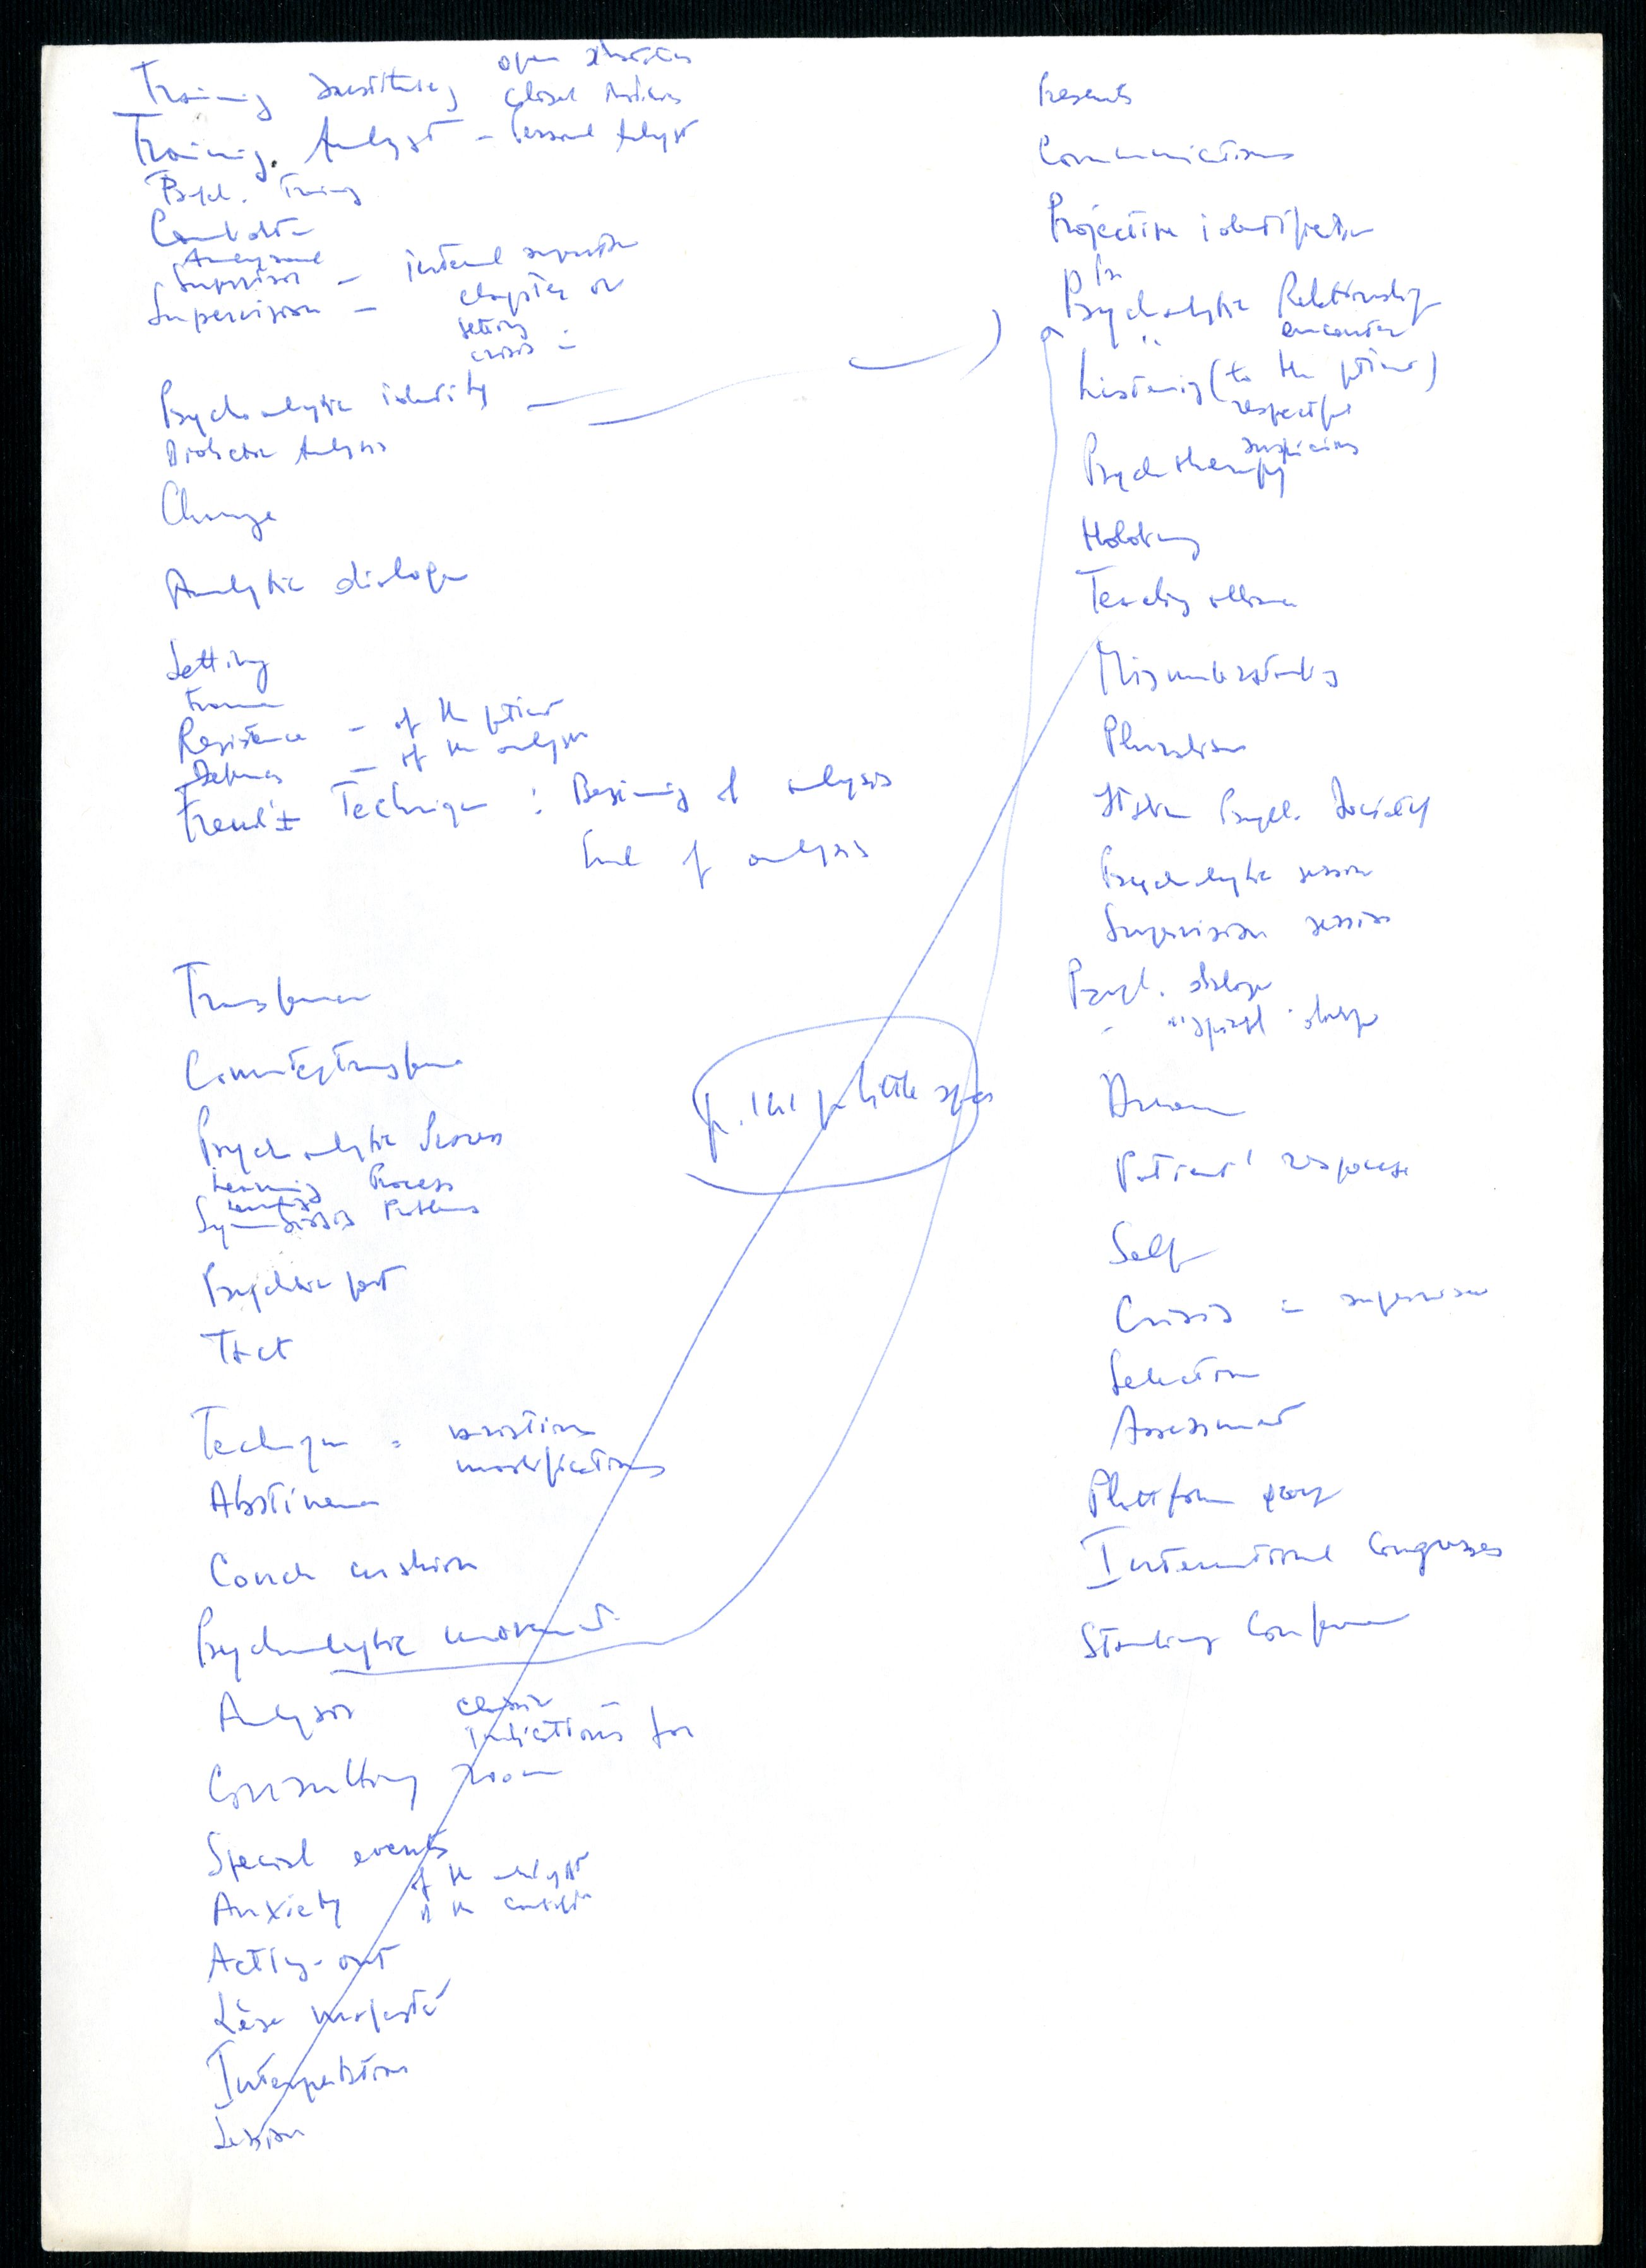 Training Institutes open
closed
Training Analyst - Personal Analyst
Psych. Training
Candidate
Analysand
Supervisor - internal supervisor
Supervision - chapter on
setting
crisis -
Psychoanalytic identity
Didactic Analysis
Change
Analytic dialogue
Setting
Trauma
Resistence - of the patient
Defences - of the analyst
Freud's Technique : Beginning of analysis
End of analysis
Transference
Countertransference
Psychoanalytic Process
Learning Process
Learning Problems
Psychic part
Tact
Technique = variations
modifications
Abstinence
Couch cushion
Psychoanalytic movement
Analysis classic -
indications for
Consulting room
Special events
Anxiety of the analyst
of the candidate
Acting-out
Lèse majesté
Interpretation
Session
p. 141 little
Presents
Communications
Projective identification
Psychoanalytic Relationship
" encounter
Listening (to the patient)
respectful
suspicious
Psychotherapy
Holding
Teaching alliance
Misunderstanding
Pluralism
Italian Psych. Society
Psychoanalytic session
Supervision session
Psych. dialogue
Dream
Patient' response
Self
Crisis = supervision
Selection
Assessment
Plattform party
International Congresses
Standing Conference